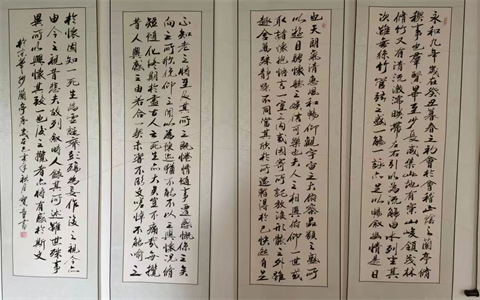 永和九年歲在癸丑暮春之初會於會稽山陰之蘭亭脩
禊事也羣賢畢至少長咸集此地有崇山峻領茂林
脩竹又有清流激湍映帶左右引以為流觴曲水列坐其
次雖無絲竹管弦之盛一觴一詠亦足以暢敘幽情是日
也天朗氣清惠風和暢仰觀宇宙之大俯察品類之盛所
以遊目騁懷足以極視聽之娛信可樂也夫人之相與俯仰一世或
取諸懷抱悟言一室之內或因寄所託放浪形骸之外雖
趣舍萬殊靜躁不同當其欣於所遇暫得於己快然自足
不知老之將至及其所之既惓情隨事遷感慨係之矣
向之所欣俛仰之間以為陳迹猶不能不以之興懷況脩
短隨化終期於盡古人云死生亦大矣豈不痛哉每攬
昔人興感之由若合一契未嘗不臨文嗟悼不能喻之
於懷固知一死生為虛誕齊彭殤為妄作後之視今亦
由今之視昔悲夫故列敘時人錄其所述雖世殊事
異所以興懷其致一也後之攬者亦將有感於斯文
蘭亭序歲在己亥年秋月書